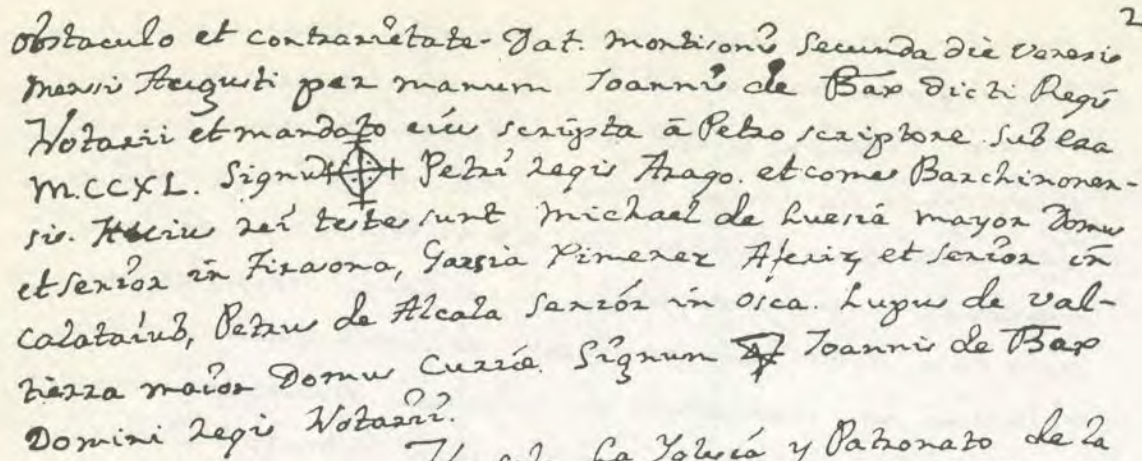 2
obstaculo et contrarietate. Dat. Montisoni Secunda die veneris
mensis Augusti per manum Joannis de Bax dicti Regis
Notarii et mandato eius scripta a Petro scriptore sub era
M.CCXL. Signum Petri regis Arago. et comes Barchinonen-
sis. Huius rei testes sunt Michael de Luesia mayor Domus
et Senior in Tirasona, Garsia Ximenez Aferiz et Senior in
Calataiub, Petrus de Alcala Senior in Osca. Lupus de val-
tierra maior Domus Currie. Signum Joannis de Bax
Domini regis Notarii.
la Yglesia y Patronato de la